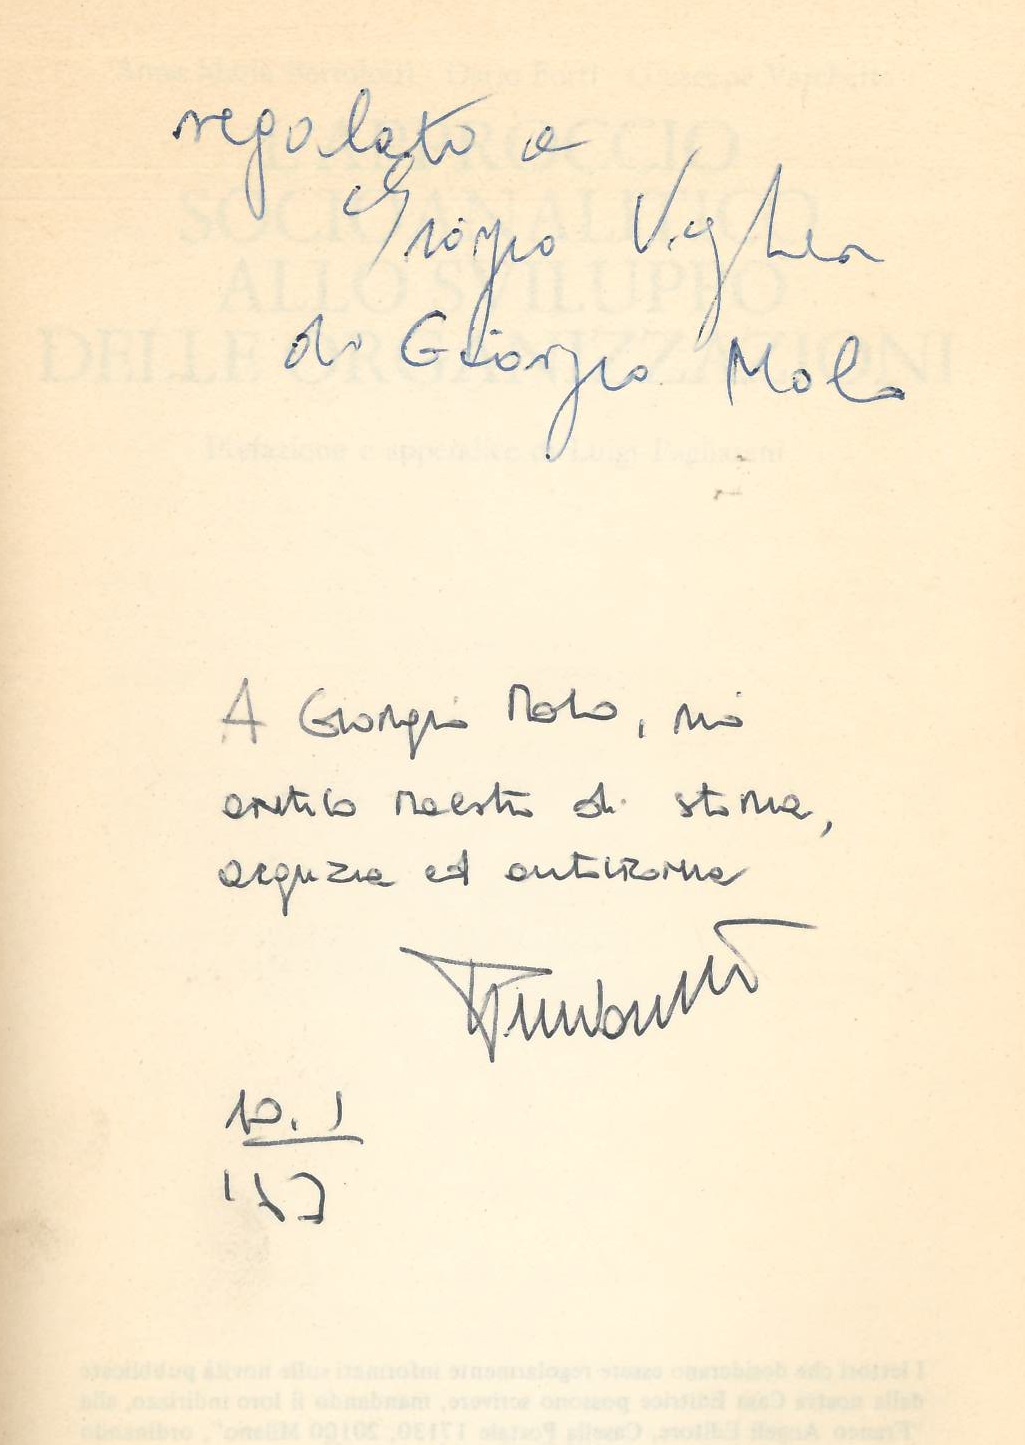 Anna Maria Bortolotti - Dario Forti - Giuseppe Varchetta
L'APPROCCIO
SOCIOANALITICO
ALLO SVILUPPO
DELLE ORGANIZZAZIONI
Prefazione e appendice di Luigi Pagliarani
regalato a
Giorgio Vighi
di Giorgio Mola
A Giorgio Mola, mio
antico maestro di storia,
arguzia ed autoironia
10.1
I lettori che desiderano essere regolarmente informati sulle novità pubblicate
dalla nostra Casa Editrice possono scrivere, mandando il loro indirizzo, alla
"Franco Angeli Editore, Casella Postale 17130, 20100 Milano", ordinando